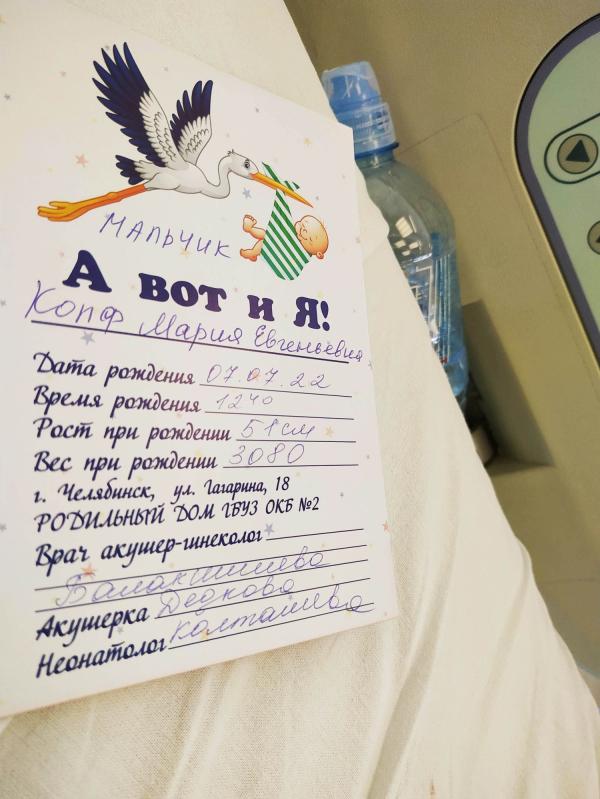 МАЛЬЧИК
А ВОТ И Я!
Копф Мария Евгеньевна
Дата рождения 07.07.22
Время рождения 12 40
Рост при рождении 51 см
Вес при рождении 3080
г. Челябинск, ул. Гагарина, 18
РОДИЛЬНЫЙ ДОМ ГБУЗ ОКБ №2
Врач акушер-гинеколог
Акушерка Дедкова
Неонатолог Колташева